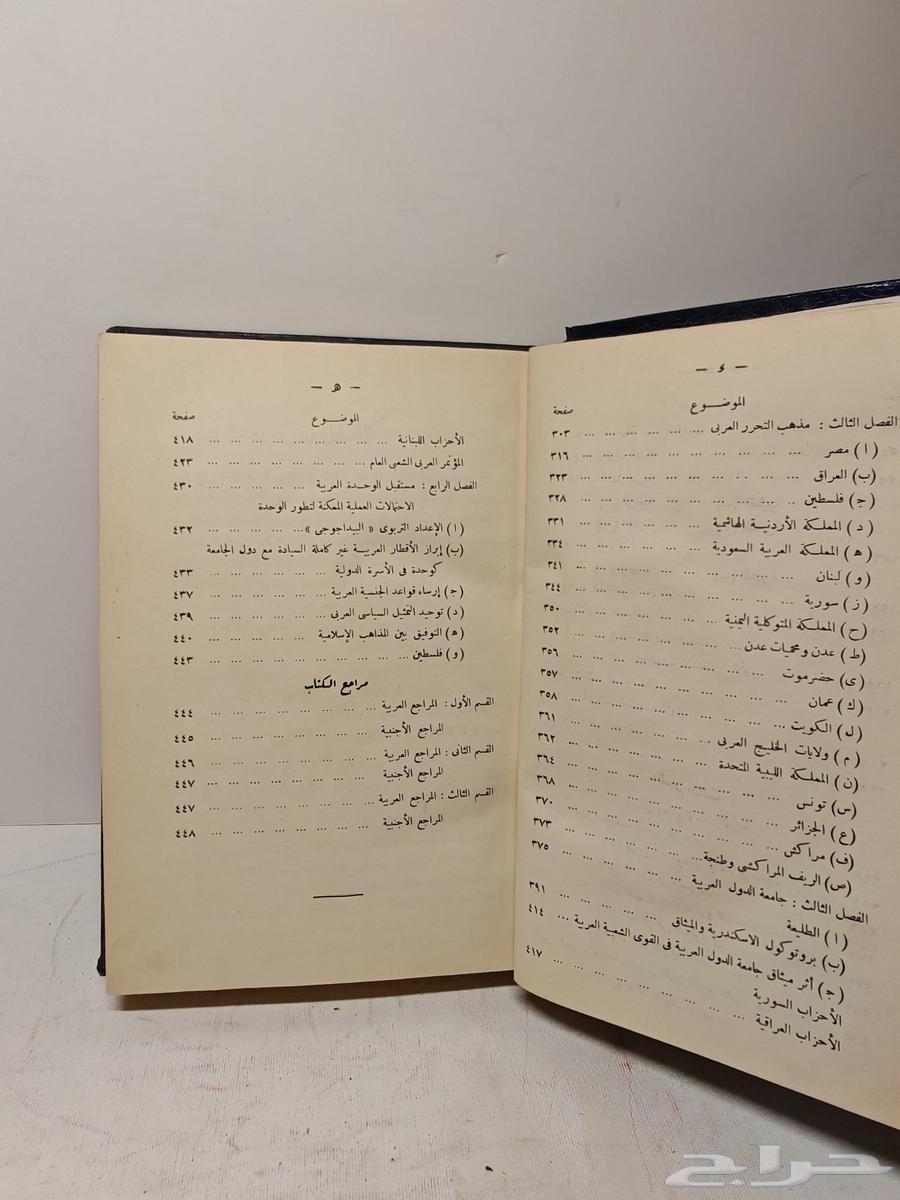 — د —
الموضوع صفحة
الفصل الثالث : مذهب التحرر العربى ... ... ... ... ... ٣٠٣
( ا ) مصر ... ... ... ... ... ... ... ٣١٦
(ب) العراق ... ... ... ... ... ... ٣٢٣
(ج) فلسطين ... ... ... ... ... ... ٣٢٨
( د ) المملكة الأردنية الهاشمية ... ... ... ... ٣٣١
(ه) المملكة العربية السعودية ... ... ... ... ٣٣٤
( و ) لبنان ... ... ... ... ... ... ... ٣٤١
( ز ) سورية ... ... ... ... ... ... ... ٣٤٤
(ح) المملكة المتوكلية اليمنية ... ... ... ... ٣٥٠
(ط) عدن ومحميات عدن ... ... ... ... ٣٥٢
(ى) حضرموت ... ... ... ... ... ... ٣٥٦
(ك) عمان ... ... ... ... ... ... ... ٣٥٧
( ل ) الكويت ... ... ... ... ... ... ٣٥٨
( م ) ولايات الخليج العربى ... ... ... ... ٣٦١
(ن) المملكة الليبية المتحدة ... ... ... ... ٣٦٢
(س) تونس ... ... ... ... ... ... ... ٣٦٤
(ع) الجزائر ... ... ... ... ... ... ٣٦٨
(ف) مراكش ... ... ... ... ... ... ٣٧٠
(ص) الريف المراكشى وطنجة ... ... ... ... ٣٧٣
الفصل الثالث : جامعة الدول العربية ... ... ... ... ٣٧٥
( ا ) الطليعة
(ب) بروتوكول الاسكندرية والميثاق ... ... ... ... ٣٩١
(ج) أثر ميثاق جامعة الدول العربية فى القوى الشعبية العربية ... ٤١٤
الأحزاب السورية ... ... ... ... ... ... ٤١٧
الأحزاب العراقية ... ...
— ه —
الموضوع صفحة
الأحزاب اللبنانية ... ... ... ... ... ... ... ... ٤١٨
المؤتمر العربى الشعبى العام ... ... ... ... ... ... ... ٤٢٣
الفصل الرابع : مستقبل الوحدة العربية ... ... ... ... ... ٤٣٠
الاحتمالات العملية الممكنة لتطور الوحدة
( ا ) الإعداد التربوى « البيداجوجى » ... ... ... ... ٤٣٢
(ب) إبراز الأقطار العربية غير كاملة السيادة مع دول الجامعة
كوحدة فى الأسرة الدولية ... ... ... ... ... ٤٣٣
(ج) إرساء قواعد الجنسية العربية ... ... ... ... ... ٤٣٧
(د) توحيد التمثيل السياسى العربى ... ... ... ... ... ٤٣٩
(ه) التوفيق بين المذاهب الإسلامية ... ... ... ... ... ٤٤٠
(و) فلسطين ... ... ... ... ... ... ... ... ٤٤٣
مراجع الكتاب
القسم الأول : المراجع العربية ... ... ... ... ... ... ... ٤٤٤
المراجع الأجنبية ... ... ... ... ... ... ... ٤٤٥
القسم الثانى : المراجع العربية ... ... ... ... ... ... ... ٤٤٦
المراجع الأجنبية ... ... ... ... ... ... ... ٤٤٧
القسم الثالث : المراجع العربية ... ... ... ... ... ... ... ٤٤٧
المراجع الأجنبية ... ... ... ... ... ... ... ٤٤٨
حراج